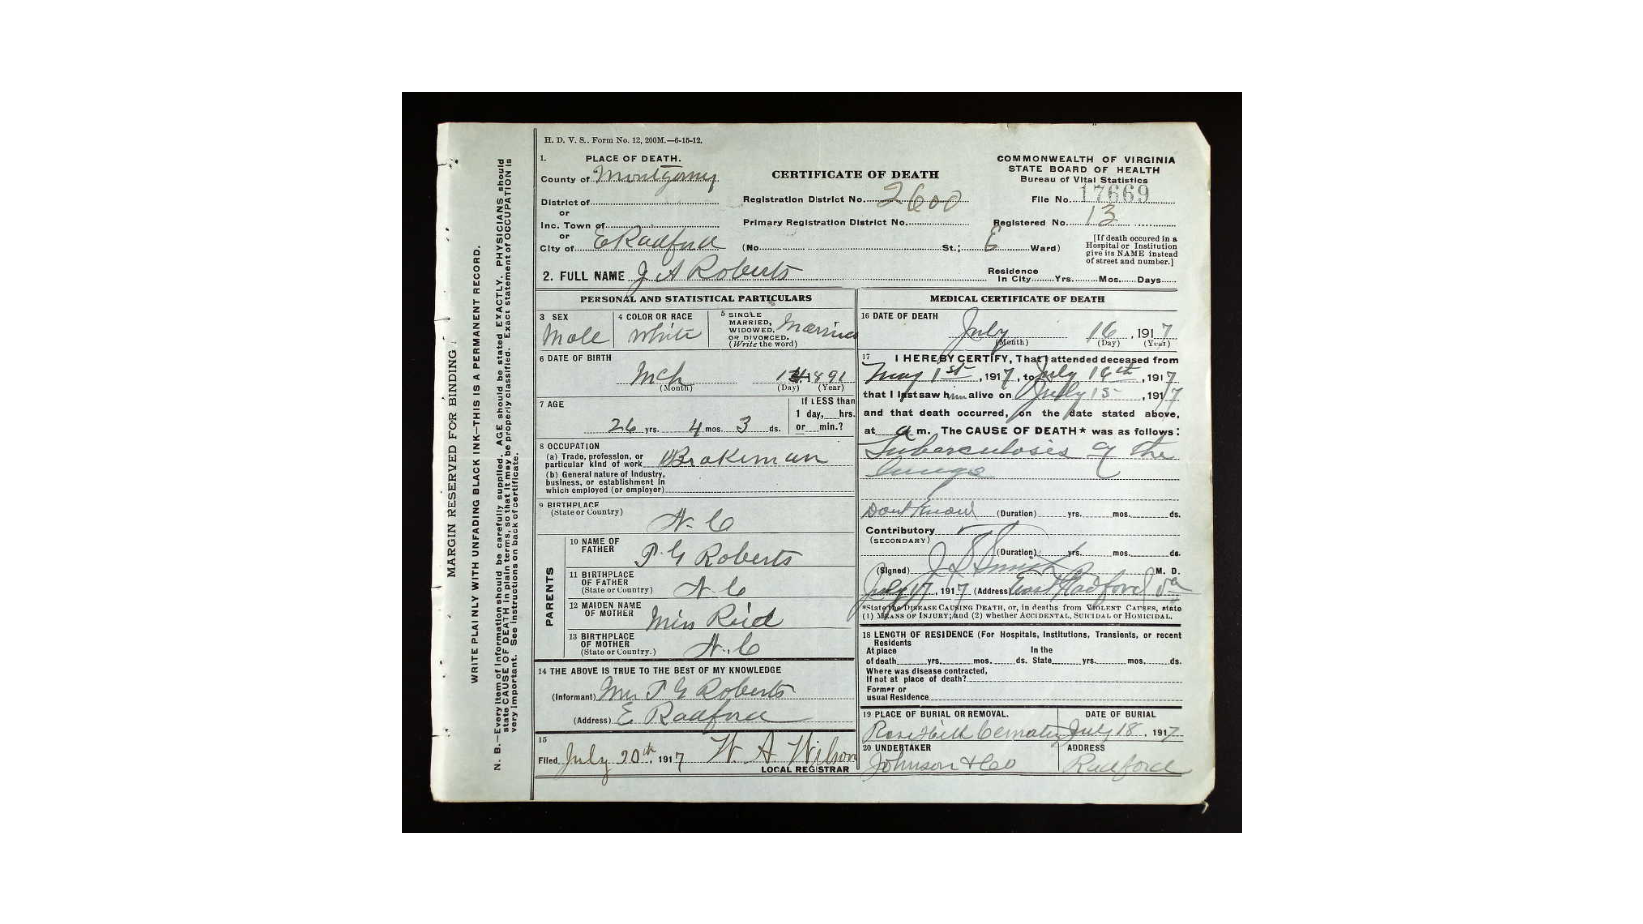 H. D. V. S.. Form No. 12, 200M.—6-15-12.
1. PLACE OF DEATH.
County of Montgomry
District of
or
Inc. Town of
or
City of E Radford
CERTIFICATE OF DEATH
Registration District No. 2600
Primary Registration District No.
(No. St.; E Ward)
COMMONWEALTH OF VIRGINIA
STATE BOARD OF HEALTH
Bureau of Vital Statistics
File No. 17669
Registered No. 13
[If death occured in a
Hospital or Institution
give its NAME instead
of street and number.]
2. FULL NAME J A Roberts
Residence
In City Yrs. Mos. Days
PERSONAL AND STATISTICAL PARTICULARS
3 SEX
Male
4 COLOR OR RACE
White
5 SINGLE
MARRIED,
WIDOWED,
OR DIVORCED.
(Write the word)
Married
6 DATE OF BIRTH
Mch 1891
(Month) (Day) (Year)
7 AGE
26 yrs. 4 mos. 3 ds.
If LESS than
1 day, hrs.
or min.?
8 OCCUPATION
(a) Trade, profession, or
particular kind of work Brakeman
(b) General nature of Industry,
business, or establishment in
which employed (or employer)
9 BIRTHPLACE
(State or Country)
N. C
PARENTS
10 NAME OF
FATHER
T. G Roberts
11 BIRTHPLACE
OF FATHER
(State or Country)
N. C
12 MAIDEN NAME
OF MOTHER
Miss Reid
13 BIRTHPLACE
OF MOTHER
(State or Country.)
N. C
14 THE ABOVE IS TRUE TO THE BEST OF MY KNOWLEDGE
(Informant) Mrs T G Roberts
(Address) E Radford
15
Filed July 20th, 1917 W A Wilson
LOCAL REGISTRAR
MEDICAL CERTIFICATE OF DEATH
16 DATE OF DEATH
July 16, 1917
(Month) (Day) (Year)
17 I HEREBY CERTIFY, That I attended deceased from
May 1st, 1917, to July 16th, 1917
that I last saw him alive on July 15, 1917
and that death occurred, on the date stated above,
at a m. The CAUSE OF DEATH* was as follows:
Tuberculosis of the
lungs
Dont Know (Duration) yrs. mos. ds.
Contributory
(SECONDARY)
(Duration) yrs. mos. ds.
(Signed) J S Smith M. D.
July 17, 1917 (Address) East Radford Va
*State the DISEASE CAUSING DEATH, or, in deaths from VIOLENT CAUSES, state
(1) MEANS OF INJURY; and (2) whether ACCIDENTAL, SUICIDAL or HOMICIDAL.
18 LENGTH OF RESIDENCE (For Hospitals, Institutions, Transients, or recent
Residents
At place In the
of death yrs. mos. ds. State yrs. mos. ds.
Where was disease contracted,
If not at place of death?
Former or
usual Residence
19 PLACE OF BURIAL OR REMOVAL. DATE OF BURIAL
Rose Hill July 18, 1917
20 UNDERTAKER ADDRESS
Johnson & Co Radford
MARGIN RESERVED FOR BINDING
WRITE PLAINLY WITH UNFADING BLACK INK—THIS IS A PERMANENT RECORD.
N. B.—Every item of information should be carefully supplied. AGE should be stated EXACTLY. PHYSICIANS should
state CAUSE OF DEATH in plain terms, so that it may be properly classified. Exact statement of OCCUPATION is
very important. See instructions on back of certificate.